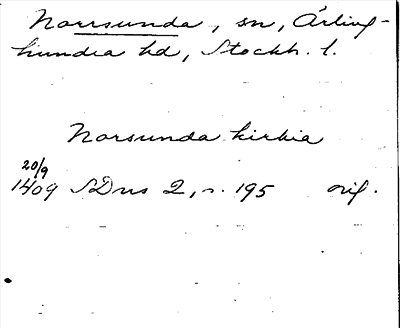 Norrsunda, sn, Ärling-
hundra hd, Stockh. l.
Norsunda kirkia
20/9
1409 SDns 2, s. 195 orig.